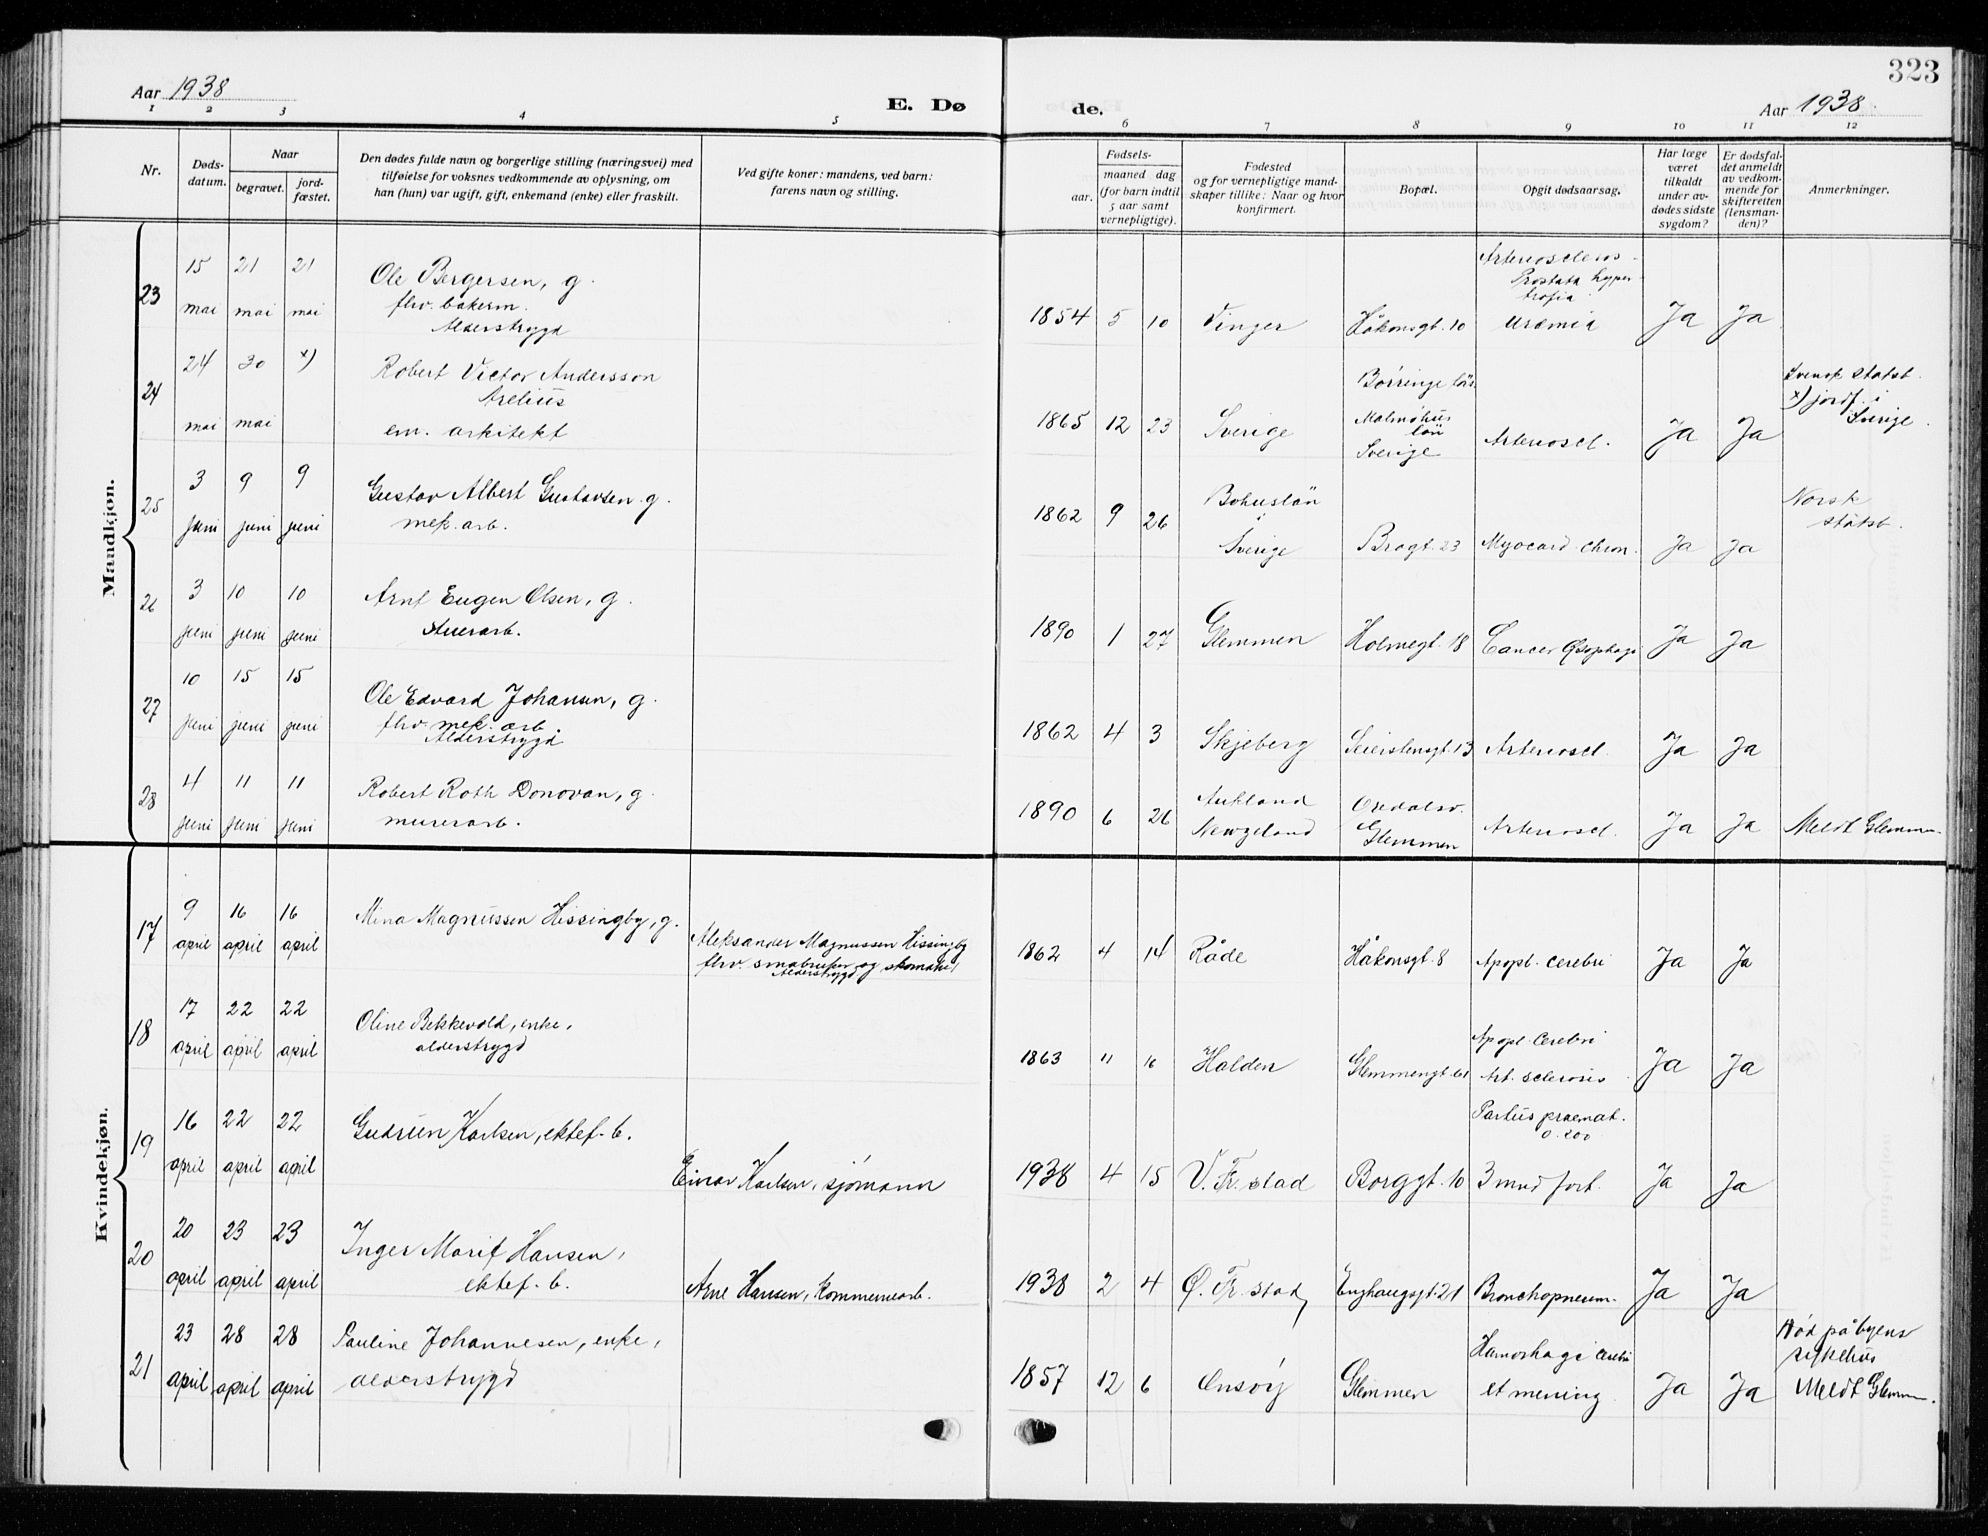 323
Aar 1938
E. Dø
de.
Aar 1938
1 2 3 4 5 6 7 8 9 10 11 12
Nr.
Døds-
datum.
Naar
begravet.
jord-
fæstet.
Den dødes fulde navn og borgerlige stilling (næringsvei) med
tilføielse for voksnes vedkommende av oplysning, om
han (hun) var ugift, gift, enkemand (enke) eller fraskilt.
Ved gifte koner: mandens, ved barn:
farens navn og stilling.
Fødsels-
aar.
maaned dag
(for barn indtil
5 aar samt
vernepligtige).
Fødested
og for vernepligtige mand-
skaper tillike: Naar og hvor
konfirmert.
Bopæl.
Opgit dødsaarsag.
Har læge
været
tilkaldt
under av-
dødes sidste
sygdom?
Er dødsfal-
det anmeldt
av vedkom-
mende for
skifteretten
(lensman-
den)?
Anmerkninger.
Mandkjøn.
23
15 mai
21 mai
21 mai
Ole Bergersen, g.
fhv. bakerm.
Alderstrygd
1854 5 10
Vinger
Håkonsgt. 10
Arterioscleros -
Prostata hyper
trofia
Uræmia
Ja Ja
24
24 mai
30 mai
x)
Robert Victor Andersson
Arelius
em. arkitekt
1865 12 23
Sverige
Börringe län
Malmöhus
län
Sverige
Arterioscl.
Ja Ja
Svensk statsb.
x) jordf. i
Sverige.
25
3 juni
9 juni
9 juni
Gustav Albert Gustavsen g.
mek. arb.
1862 9 26
Bohuslän
i
Sverige
Bragt. 23
Myocard. chron.
Ja Ja
Norsk
statsb.
26
3 juni
10 juni
10 juni
Arnt Eugen Olsen, g.
stuerarb.
1890 1 27
Glemmen
Holmegt. 18
Cancer Øsophagi
Ja Ja
27
10 juni
15 juni
15 juni
Ole Edvard Johansen, g.
fhv. mek. arb.
Alderstrygd
1862 4 3
Skjeberg
Seierstensgt. 13
Arterioscl.
Ja Ja
28
4 juni
11 juni
11 juni
Robert Roth Donovan, g.
murerarb.
1890 6 26
Aukland
Newzeland
Oredalsv.
Glemmen
Arterioscl.
Ja Ja
Meldt Glemm.
Kvindekjøn.
17
9 april
16 april
16 april
Mina Magnussen Hissingby, g.
Aleksander Magnussen Hissingby
fhv. småbruker og skomaker
Alderstrygd
1862 4 14
Råde
Håkonsgt. 8
Apopl. cerebri
Ja Ja
18
17 april
22 april
22 april
Oline Bekkevold, enke,
alderstrygd
1863 11 16
Halden
Glemmengt. 61
Apopl. cerebri
Art. sclerosis
Ja Ja
19
16 april
22 april
22 april
Gudrun Karlsen, ektef. b.
Einar Karlsen, sjømann
1938 4 15
V. Fr. stad
Borggt. 10
Partus præmat.
3 mnd fort.
Ja Ja
20
20 april
23 april
23 april
Inger Marit Hansen,
ektef. b.
Arne Hansen, kommunearb.
1938 2 4
Ø. Fr. stad
Enghaugsgt. 21
Bronchopneum.
Ja Ja
21
23 april
28 april
28 april
Pauline Johannesen, enke,
alderstrygd
1857 12 6
Onsøy
Glemmen
Hæmorhagi cerebri
et mening
Ja Ja
Død på byens
sykehus
Meldt Glemm.